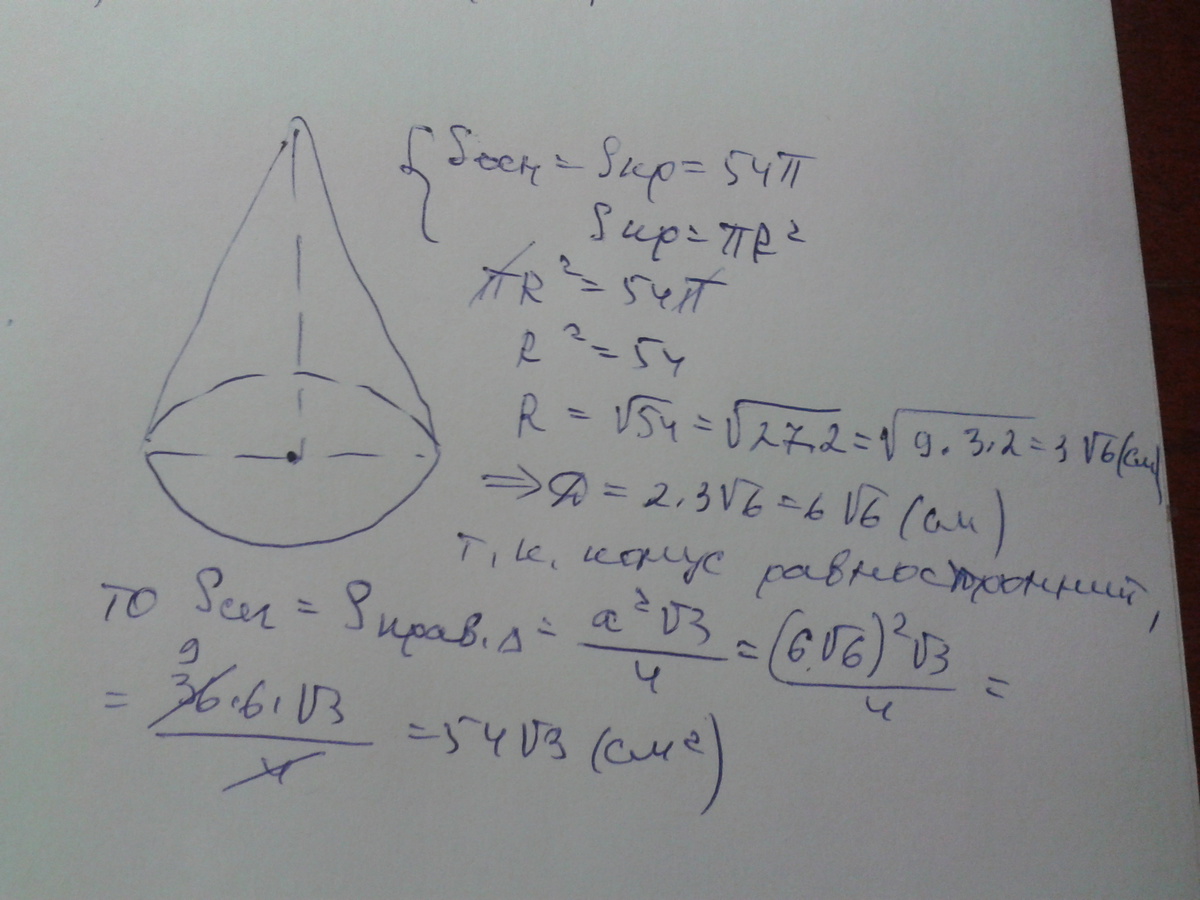 { Sосн = Sкр = 54π
Sкр = πR²
πR² = 54π
R² = 54
R = √54 = √27.2 = √9.3.2 = 3√6 (см)
⇒ D = 2.3√6 = 6√6 (см)
т, к. конус равносторонний,
то Sсеч = Sправ. Δ = a²√3/4 = (6√6)²√3/4 =
= 9 36.6.√3/4 = 54√3 (см²)